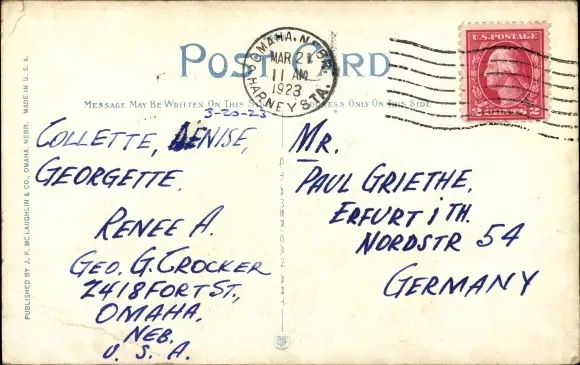 POST CARD
OMAHA, NEBR.
MAR 21
11 AM
1923
HARNEY STA.
U.S. POSTAGE
2 CENTS 2
MESSAGE MAY BE WRITTEN ON THIS SIDE
ADDRESS ONLY ON THIS SIDE
3-20-23
COLLETTE, DENISE,
GEORGETTE.
RENEE A.
GEO. G. CROCKER
2418 FORT ST.,
OMAHA,
NEB.
U. S. A.
MR.
PAUL GRIETHE,
ERFURT i TH.
NORDSTR 54
GERMANY
PUBLISHED BY J. F. MCLAUGHLIN & CO., OMAHA, NEBR. MADE IN U. S. A.